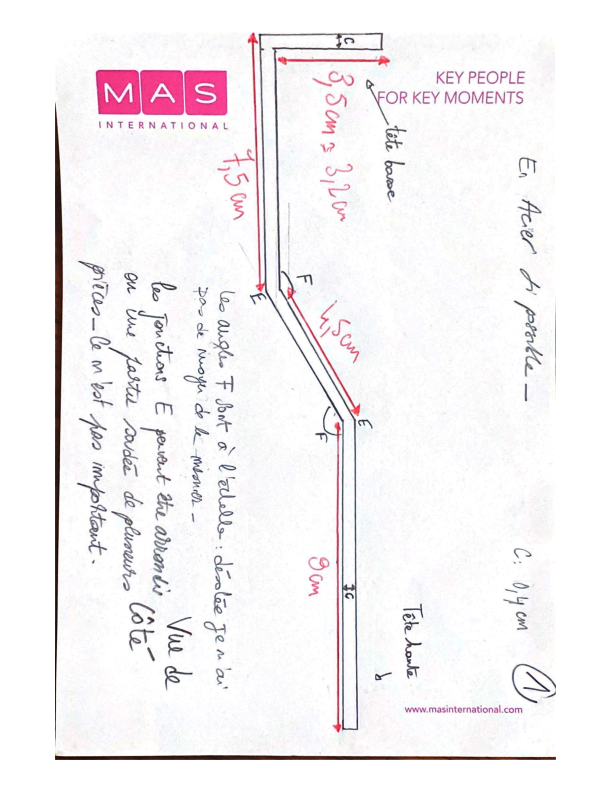 MAS
INTERNATIONAL
KEY PEOPLE
FOR KEY MOMENTS
www.masinternational.com
1
En Acier si possible -
C: 0,4 cm
tête basse
Tête haute
C
3,5 cm ≈ 3,2 cm
7,5 cm
E
F
4,5 cm
E
F
9 cm
C
Les angles F sont à l'échelle : désolée je n'ai
pas de moyen de le mesurer -
les jonctions E peuvent être arrondis
ou une partie soudée de plusieurs
pièces - Ce n'est pas important.
Vue de
Côté